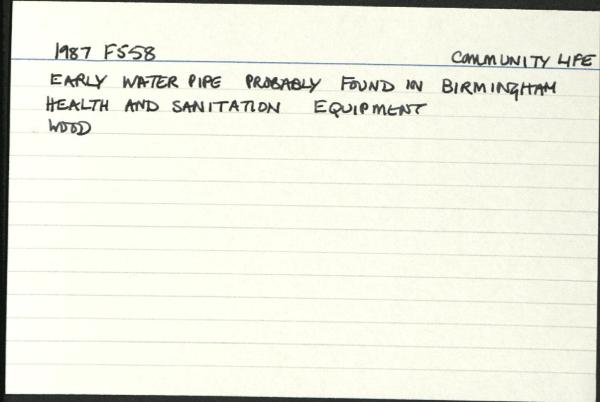 1987 F558 COMMUNITY LIFE
EARLY WATER PIPE PROBABLY FOUND IN BIRMINGHAM
HEALTH AND SANITATION EQUIPMENT
WOOD